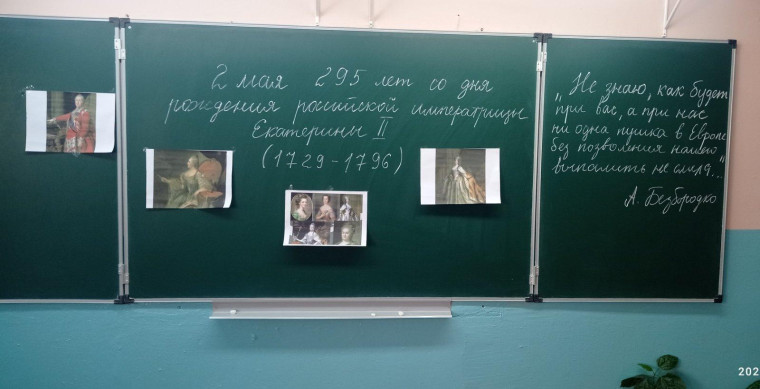 2 мая 295 лет со дня
рождения российской императрицы
Екатерины II
(1729-1796)
„Не знаю, как будет
при вас, а при нас
ни одна пушка в Европе
без позволения нашего
выпалить не смела..."
А. Безбородко
202